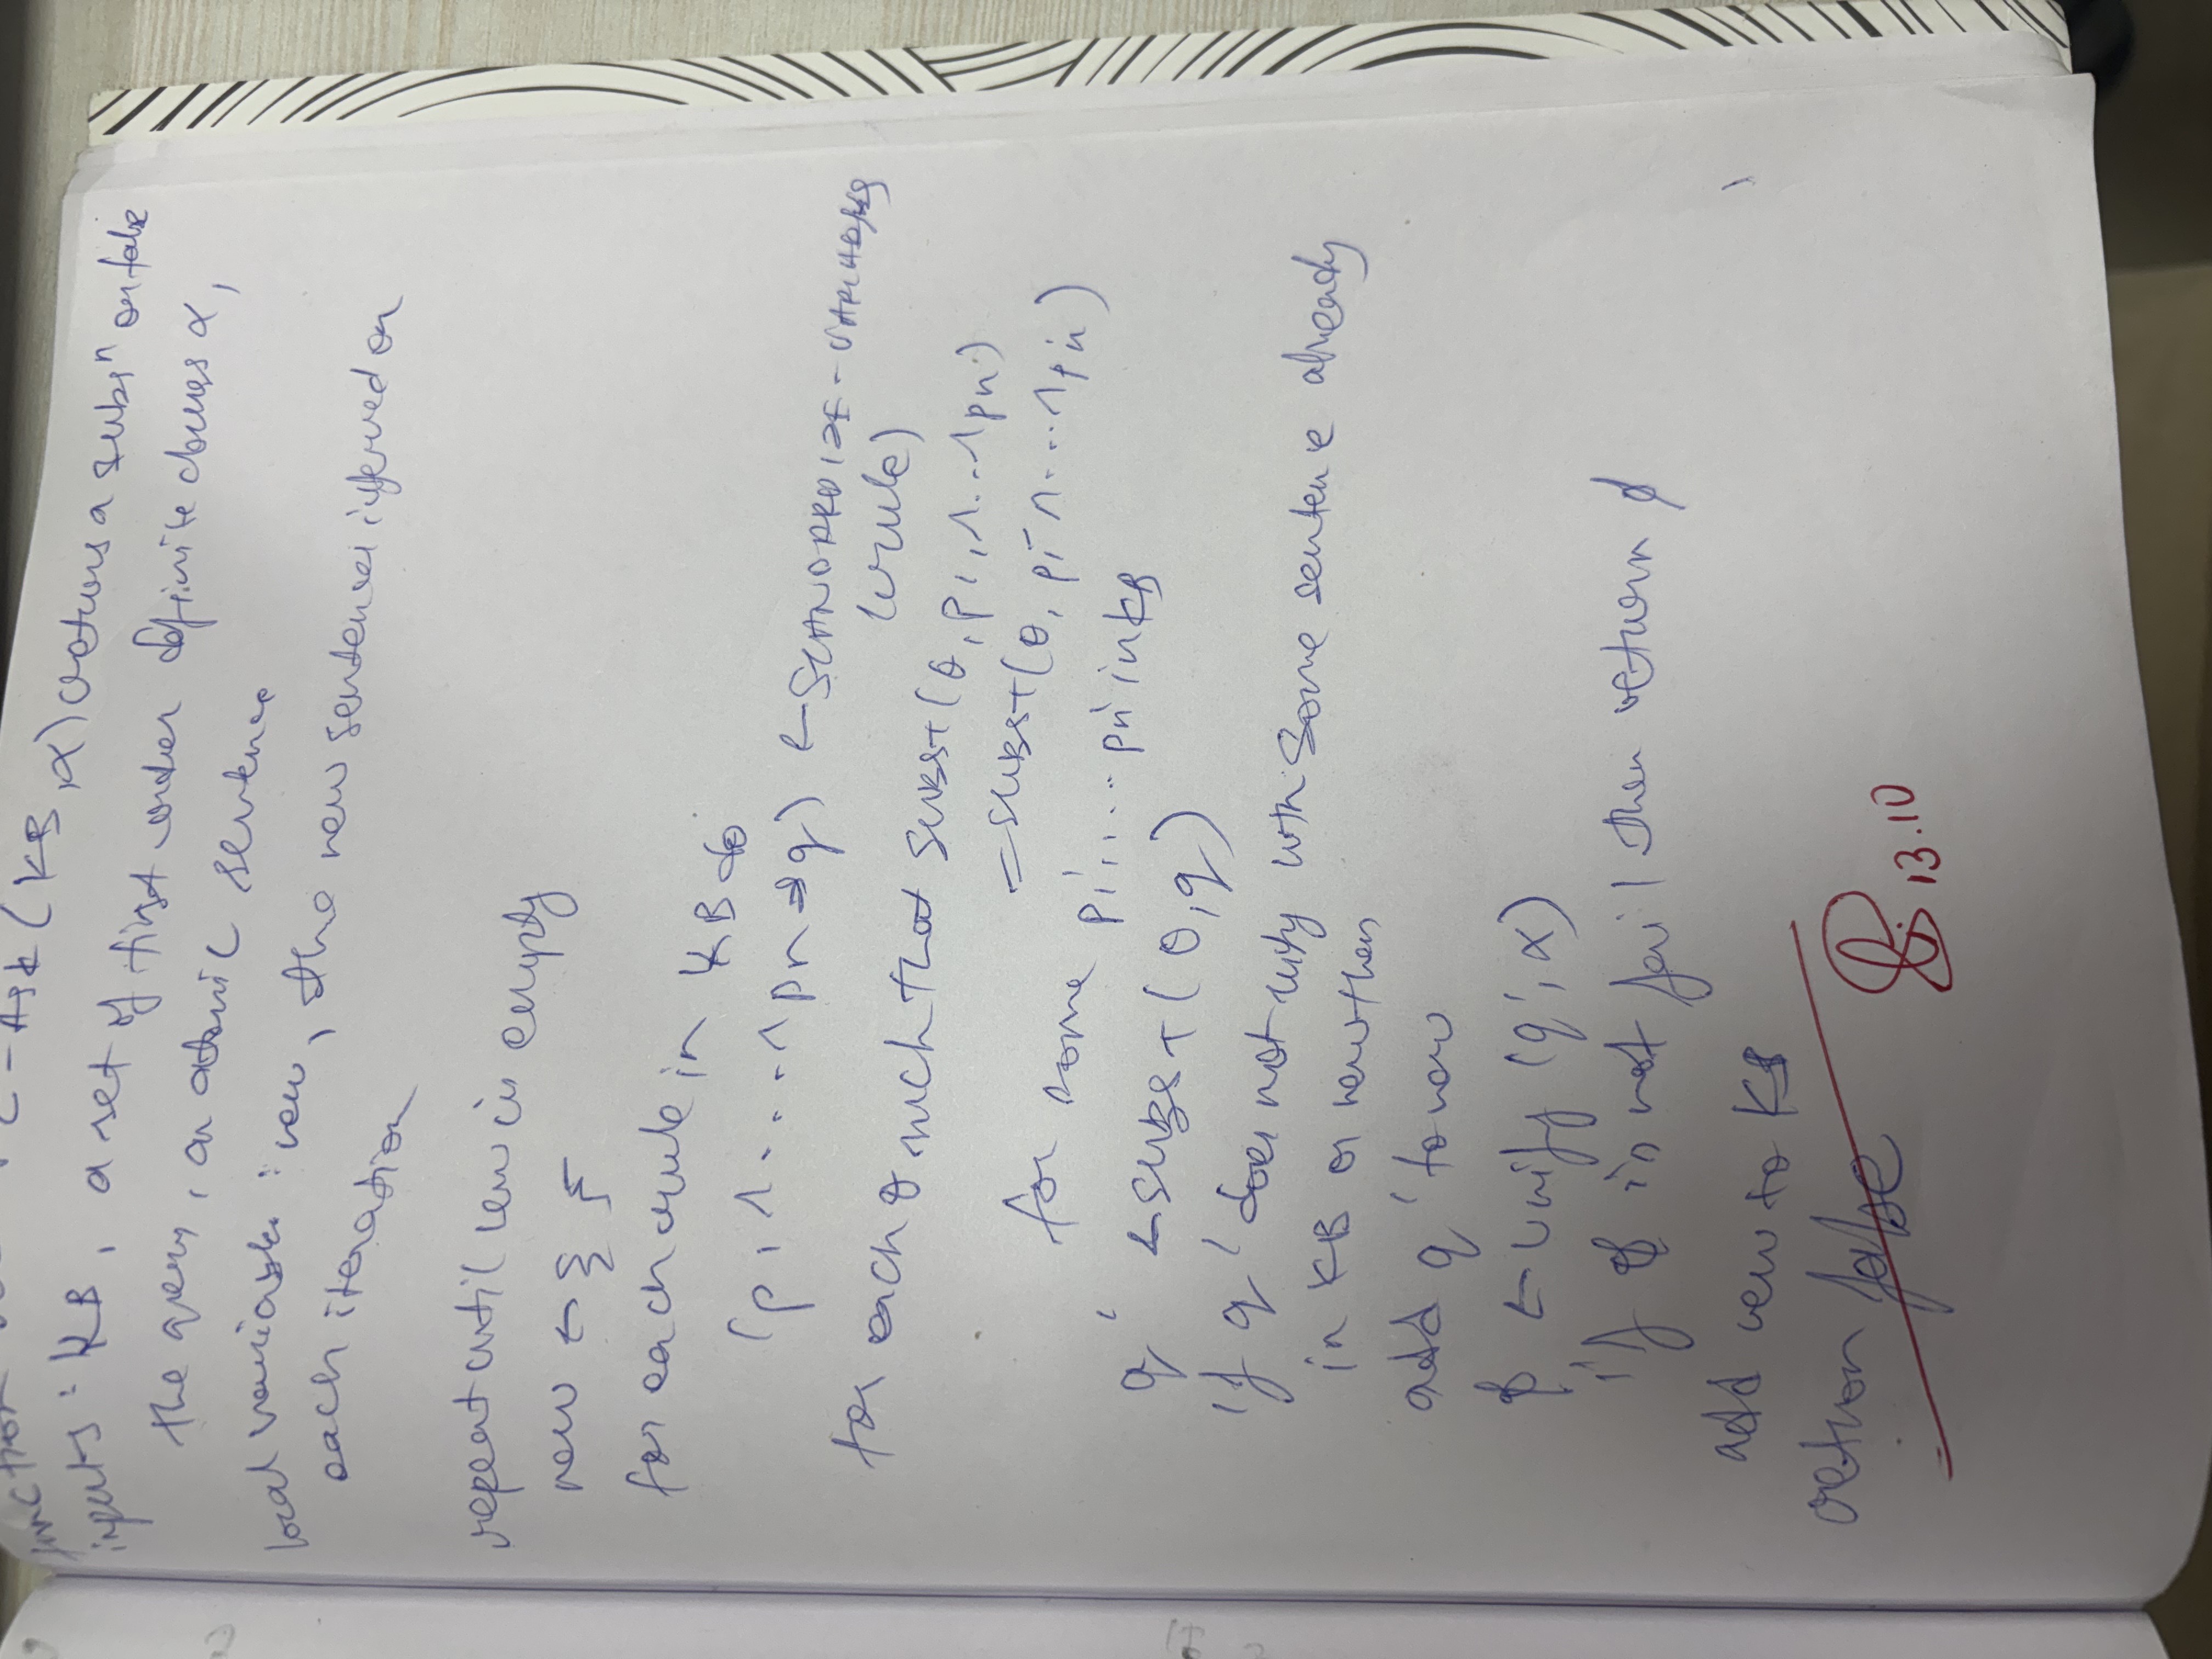 function FC-Ask (KB, α) returns a subsⁿ or false
inputs : KB, a set of first order definite clauses α,
the query, an atomic sentence
local variables : new, the new sentences inferred on
each iteration
repeat until new is empty
new ← { }
for each rule in KB do
(p1 ∧ .... ∧ pn ⇒ q) ← STANDARDIZE-VARIABLES
(rule)
for each θ such that SUBST(θ, p1, ∧...∧pn)
= SUBST(θ, p1' ∧....∧pn')
for some p1'..... pn' in KB
q' ← SUBST(θ,q)
if q' does not unify with some sentence already
in KB or new then
add q' to new
ϕ ← Unify (q', α)
if ϕ is not fail then return ϕ
add new to KB
return false
13.10